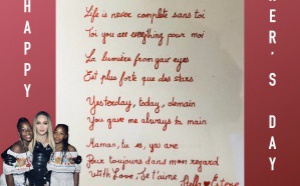 HAPPY
Life is never complete sans toi
Toi you are everything pour moi
La lumière from your eyes
Est plus forte que des stars
Yesterday, today, demain
You gave me always ta main
Maman, tu es, you are
Pour toujours dans mon regard
With Love, Je t'aime
HER'S DAY